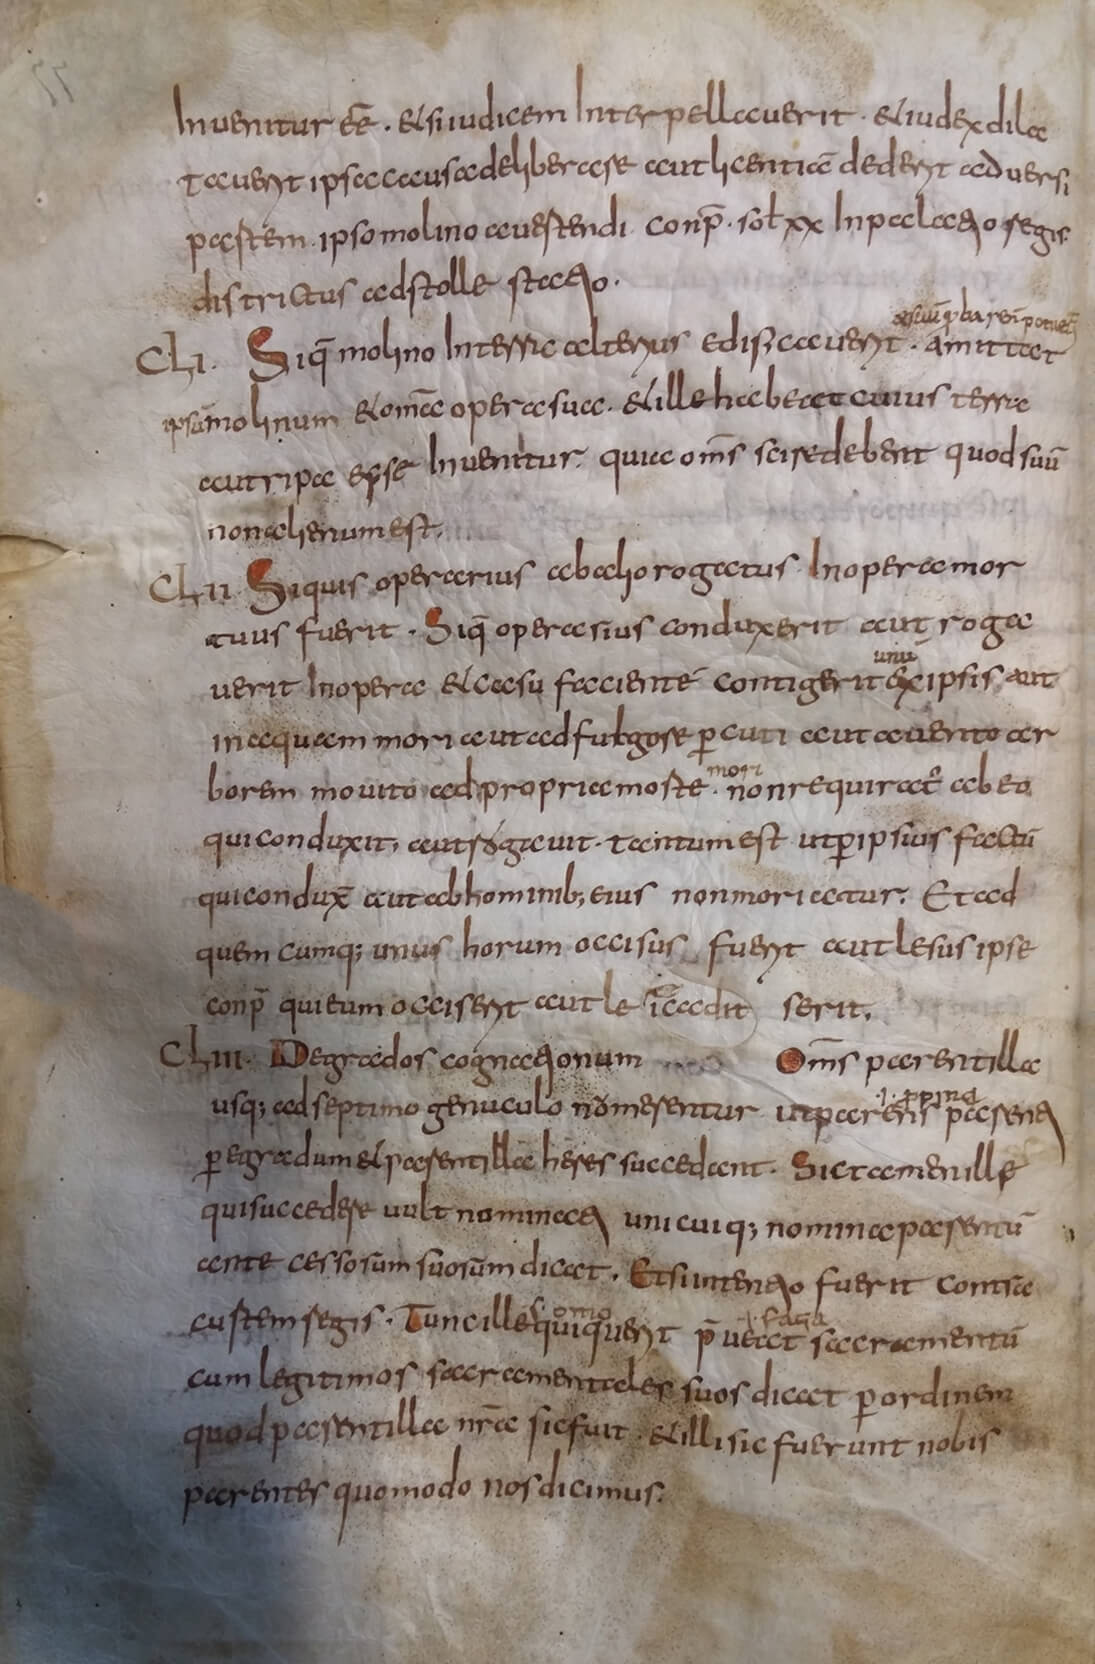 Inuenitur eē. et si iudicem Interpellauerit. et iudex dila
tauerit ipsa causa deliberare aut licentiā dederit aduersi
partem. ipso molino auertendi conp̄. sol xx In palatio regis
districtus ad stolle statio.
CLI. Siq̄ molino In terra alterius edificauerit. amittat
ipsū molinum et omā opera sua. et ille habeat cuius terra
aut ripa esse Inuenitur. quia om̄s scire debent quod suū
non alienum est.
CLII Siquis operarius ab alio rogatus In opera mor
tuus fuerit. Siq̄ operarius conduxerit aut roga
unū
uerit In opera et casu faciente contigerit ex ipsis aut
in aquam mori aut ad fulgore p̄cuti aut a uento ar
mori
borem mouito ad propria morte. non requirat̄ ab eo
qui conduxit, aut rogauit. tantum est ut p̄ ipsius factū
qui condux̄ aut ab hominib; eius non moriatur. Et ad
quem cumq; unus horum occisus fuerit aut lesus ipse
conp̄ qui eum occiserit aut le serit.
CLIII. De grados cognationum Om̄s parentilla
usq; ad septimo genuculo nomerentur ut parens parenti
p̄ gradum et parentilla heres succedant. Sic tamen ille
qui succedere uult nominati unicuiq; nomina parentū
ante cessorum suorum dicat. Et si intentio fuerit contra
custem regis. Tunc ille qui querit p̄ueat sacramentū
cum legitimos sacramentales suos dicat p̄ ordinem
quod parentilla nr̄a sic fuit. et illi sic fuerunt nobis
parentes quomodo nos dicimus.